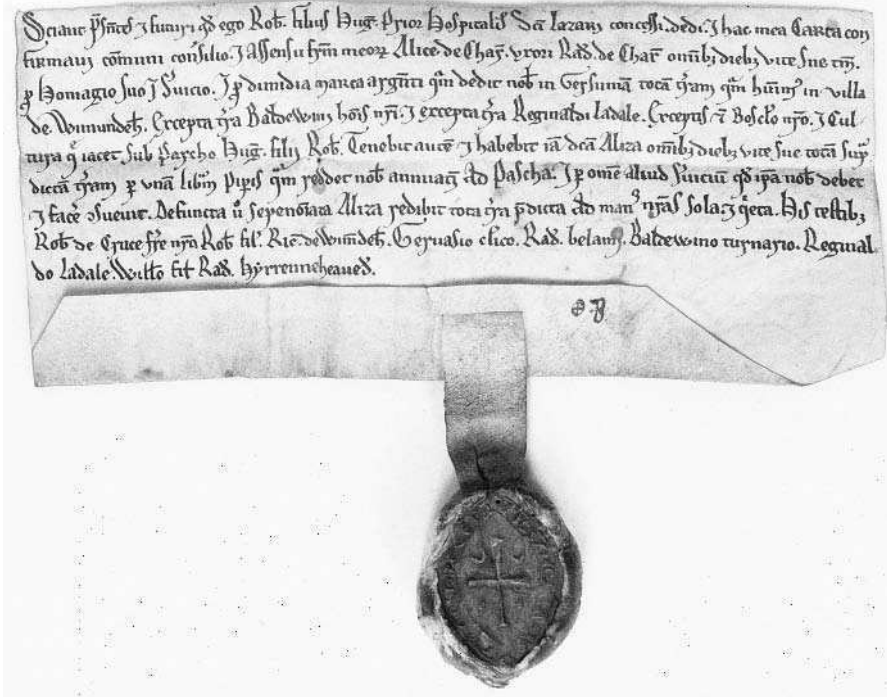 Sciant p̃sñtes ⁊ futuri qd̃ ego Rob̃. filius Hug̃. Prior Hospitalis Sc̃i Lazari concessi. dedi. ⁊ hac mea Carta con
firmavi com̃muni consilio. ⁊ assensu frm̃ meoꝝ Alice. de Char̃. uxori Rad̃. de Char̃ omnibꝫ diebꝫ vite sue tm̃.
ꝓ Homagio suo ⁊ S̃uicio. ⁊ ꝓ dimidia marca argñti qm̃ dedit nob̃ in Gersumã totã t̃ram qm̃ hũim⁹ in villa
de. Wimundeh̃. Excepta t̃ra Baldewini hõis nr̃i. ⁊ excepta t̃ra Reginaldi ladale. Exceptis ⁊ Boscło nr̃o. ⁊ Cul
tura q̃ iacet sub Parcho Hug̃. filii Rob̃. Tenebit autẽ ⁊ habebit iã dc̃ã Aliza omnibꝫ diebꝫ vite sue totã sup̃
dictã t̃ram ꝑ unã libr̃m Pip̃is qm̃ reddet nob̃ annuatĩ Ad Pascha. ⁊ ꝓ om̃e aliud S̃uiciũ qd̃ ip̃a nob̃ debet
⁊ facẽ ↄsueuit. Defuncta ũ sepenoĩata Aliza redibit tota t̃ra p̃dicta Ad man⁹ nr̃as sola. ⁊ q̃eta. His testibꝫ
Rob̃ de Cruce fr̃e nr̃o Rob̃ fil̃. Ric̃. de Wim̃deh̃. Gervasio cl̃ico. Rad̃. belam̃. Baldewino turnario. Reginal
do ladale. Will̃o fil̃ Rad̃. hyrrenneheaued̃.